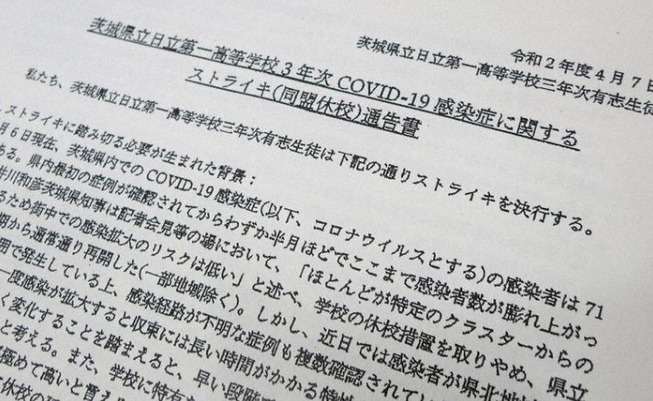 令和２年度４月７日
茨城県立日立第一高等学校三年次有志生徒
茨城県立日立第一高等学校３年次 COVID-19 感染症に関する
ストライキ(同盟休校)通告書
私たち、茨城県立日立第一高等学校三年次有志生徒は下記の通りストライキを決行する。
ストライキに踏み切る必要が生まれた背景：
月６日現在、茨城県内での COVID-19 感染症(以下、コロナウイルスとする)の感染者は 71
ある。県内最初の症例が確認されてからわずか半月ほどでここまで感染者数が膨れ上がっ
井川和彦茨城県知事は記者会見等の場において、「ほとんどが特定のクラスターからの
るため街中での感染拡大のリスクは低い」と述べ、学校の休校措置を取りやめ、県立
期から通常通り再開した(一部地域除く)。しかし、近日では感染者が県北地
用で発生している上、感染経路が不明な症例も複数確認されて
一度感染が拡大すると収束には長い時間がかかる特性
く変化することを踏まえると、早い段階
と考える。また、学校に特有
極めて高いと言え
休校の